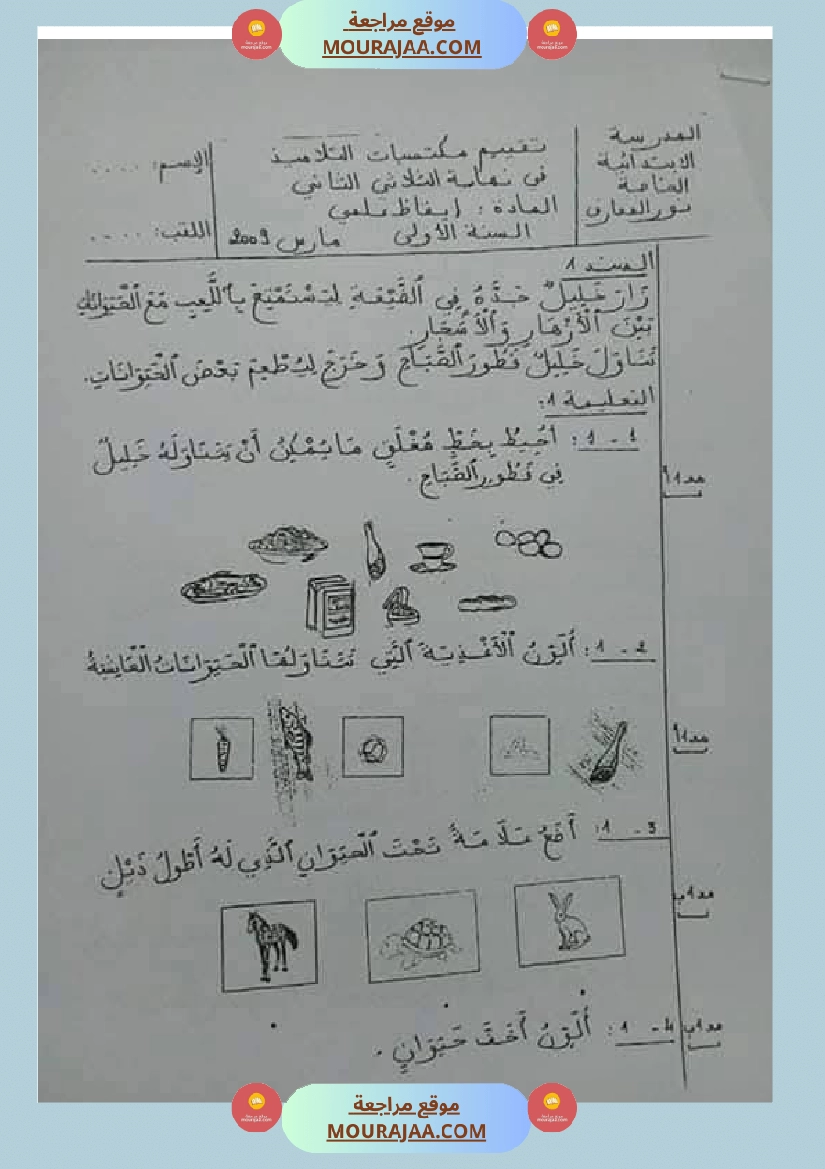 موقع مراجعة
MOURAJAA.COM
المدرسة
الابتدائية
نور المعارف
تقييم مكتسبات التلاميذ
في نهاية الثلاثي الثاني
المادة : إيقاظ علمي
السنة الأولى مارس 2009
الإسم: ....
اللقب: ....
السند 1
زَارَ خَلِيلٌ جَدَّهُ فِي ٱلضَّيْعَةِ لِيَسْتَمْتِعَ بِٱللَّعِبِ مَعَ ٱلْحَيَوَانَاتِ
بَيْنَ ٱلْأَزْهَارِ وَٱلْأَشْجَارِ.
تَنَاوَلَ خَلِيلٌ فَطُورَ ٱلصَّبَاحِ وَخَرَجَ لِيُطْعِمَ بَعْضَ ٱلْحَيَوَانَاتِ.
التعليمة 1:
1 - 1 : أُحِيطُ بِخَطٍّ مُغْلَقٍ مَا يُمْكِنُ أَنْ يَتَنَاوَلَهُ خَلِيلٌ
فِي فَطُورِ ٱلصَّبَاحِ.
مع1أ
1 - 2 : أُلَوِّنُ ٱلْأَغْذِيَةَ ٱلَّتِي تَتَنَاوَلُهَا ٱلْحَيَوَانَاتُ ٱلْعَاشِبَةُ
مع1أ
1 - 3 : أَضَعُ عَلَامَةً تَحْتَ ٱلْحَيَوَانِ ٱلَّذِي لَهُ أَطْوَلُ ذَيْلٍ
مع1ب
1 - 4 : أُلَوِّنُ أَخَفَّ حَيَوَانٍ.
مع1ب
موقع مراجعة
MOURAJAA.COM